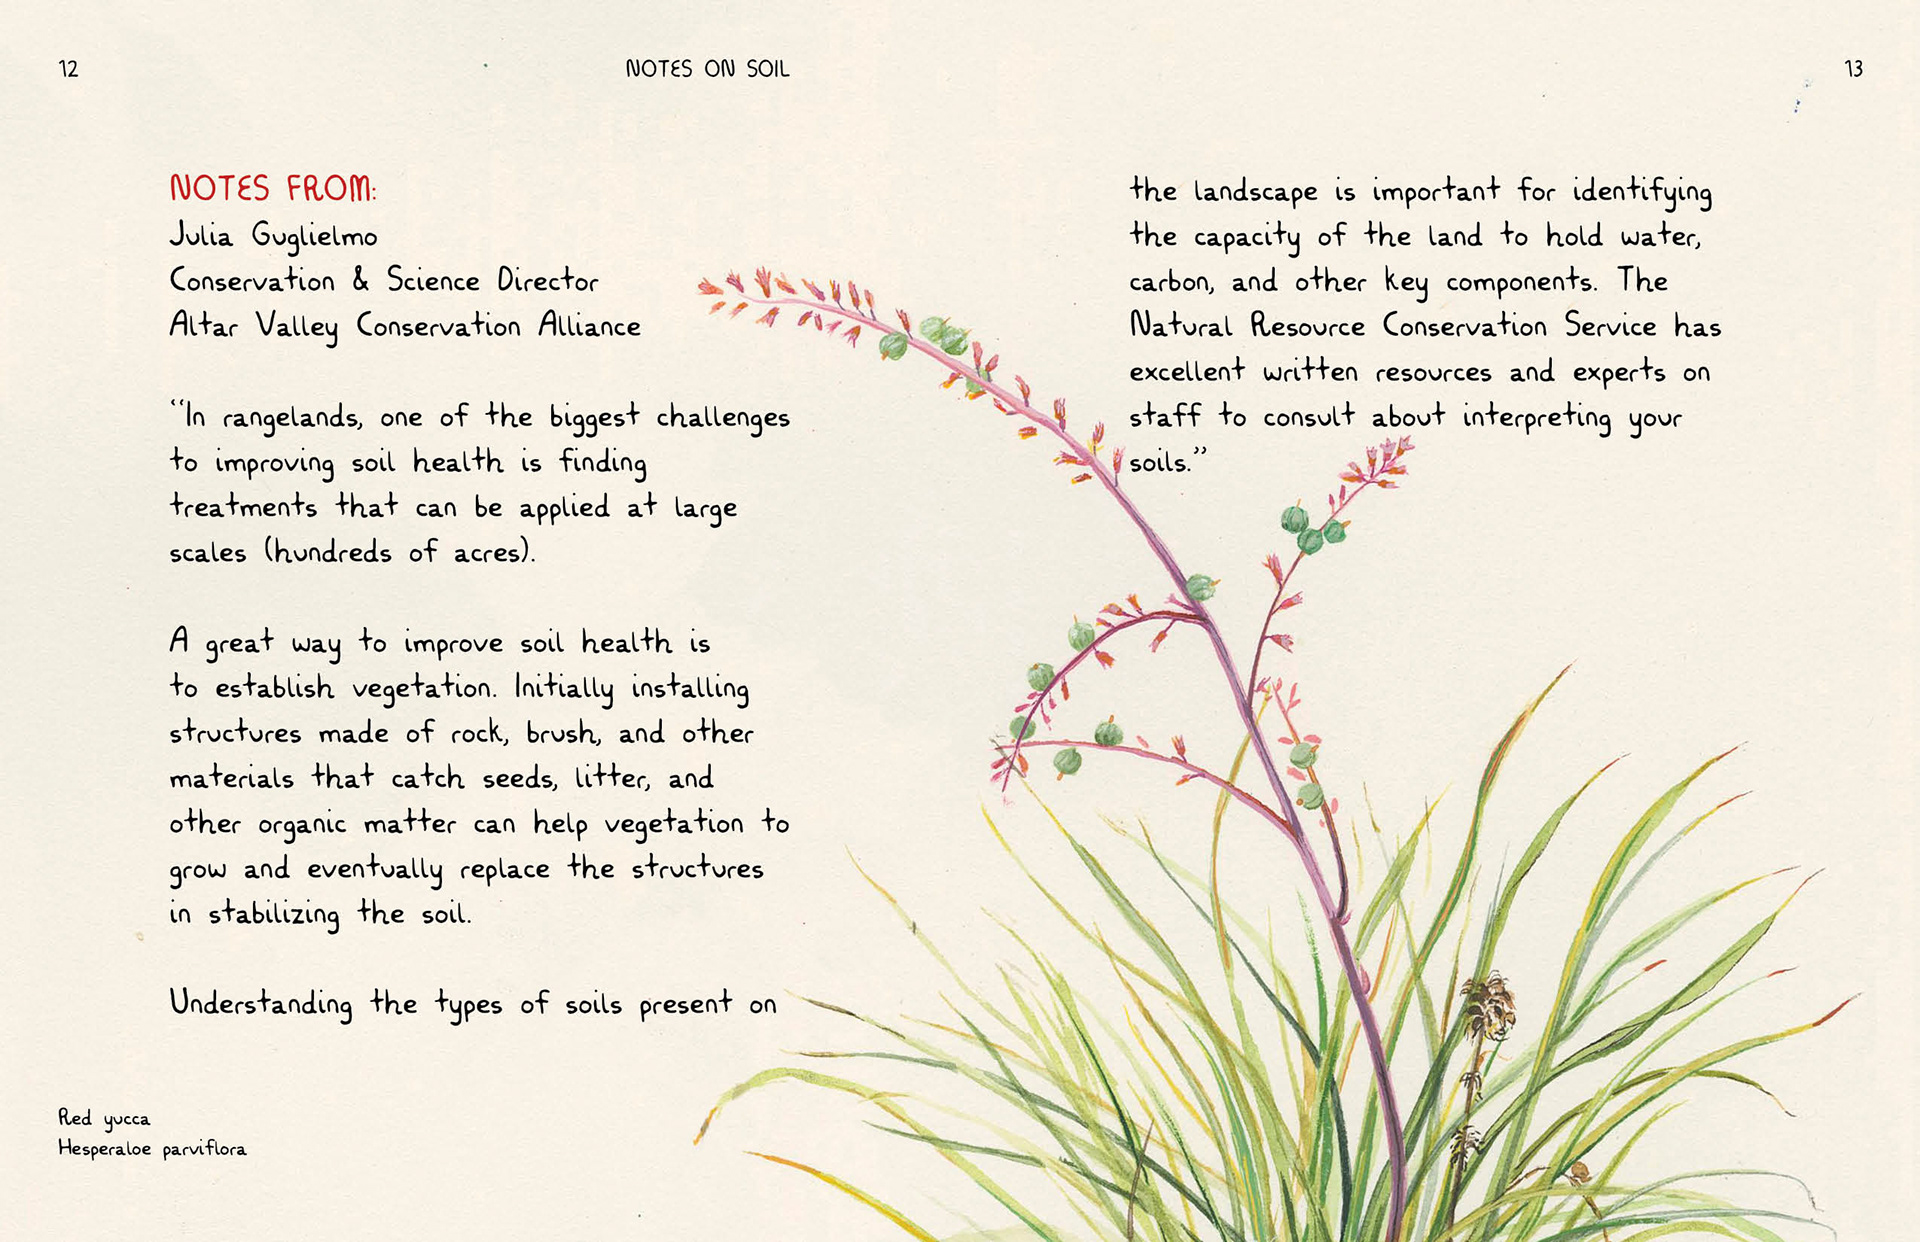 12
NOTES ON SOIL
13
NOTES FROM:
Julia Guglielmo
Conservation & Science Director
Altar Valley Conservation Alliance
“In rangelands, one of the biggest challenges
to improving soil health is finding
treatments that can be applied at large
scales (hundreds of acres).
A great way to improve soil health is
to establish vegetation. Initially installing
structures made of rock, brush, and other
materials that catch seeds, litter, and
other organic matter can help vegetation to
grow and eventually replace the structures
in stabilizing the soil.
Understanding the types of soils present on
Red yucca
Hesperaloe parviflora
the landscape is important for identifying
the capacity of the land to hold water,
carbon, and other key components. The
Natural Resource Conservation Service has
excellent written resources and experts on
staff to consult about interpreting your
soils.”